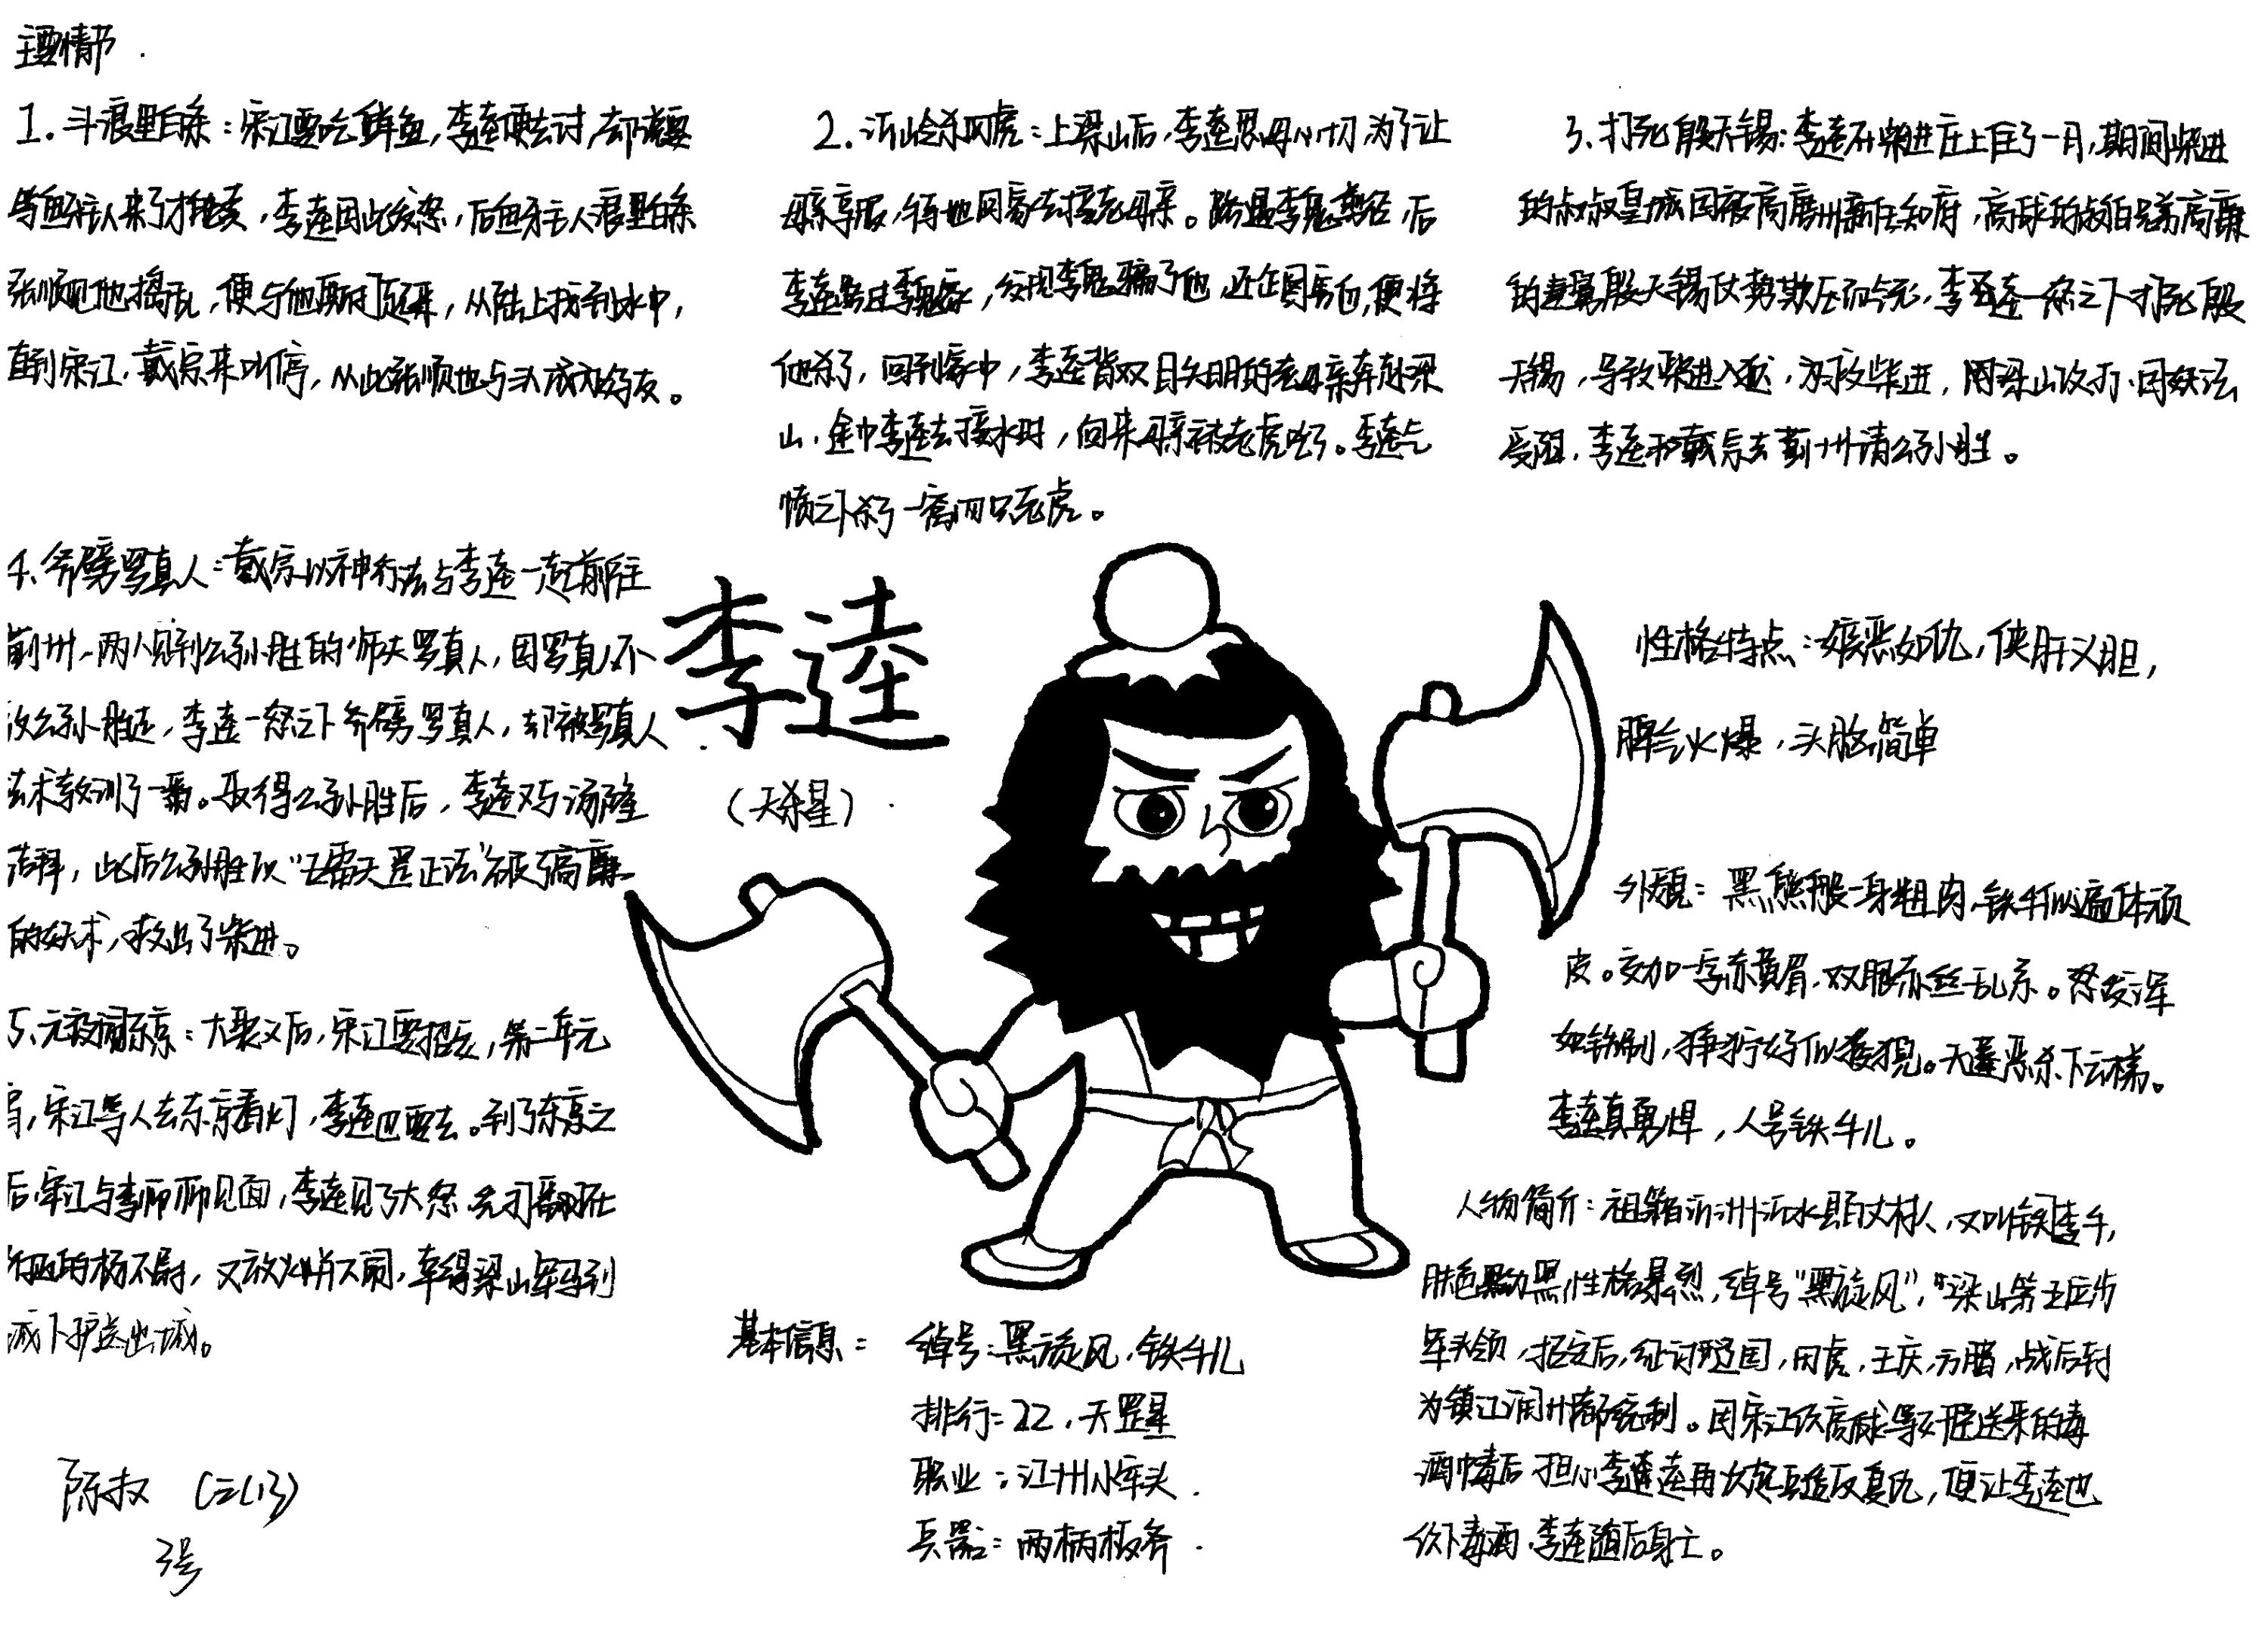 主要情节
1.斗浪里白条：宋江要吃鲜鱼，李逵便去讨，却被要
等鱼牙主人来了才能卖，李逵因此发怒，后鱼牙主人浪里白条
张顺见他捣乱，便与他厮打起来，从陆上打到水中，
直到宋江、戴宗来叫停，从此张顺也与 成为好友。
2.沂岭杀四虎：上梁山后，李逵思母心切，为了让
母亲享福，特地回家去接老母亲。路遇李鬼 ，后
李逵路过李鬼家，发现李鬼骗了他，还 ，便将
他杀了，回到家中，李逵背双目失明的老母亲奔赴梁
山，途中李逵去接水时，回来母亲被老虎吃了。李逵气
愤之下杀了一窝四只老虎。
3、打死殷天锡：李逵在柴进庄上住了一月，期间柴进
的叔叔皇城因被高唐州新任知府，高球的叔伯兄弟高廉
的妻舅殷天锡仗势欺压而占死，李逵一怒之下打死殷
天锡，导致柴进入狱，为救柴进，用梁山攻打，因妖法
受阻，李逵和戴宗去蓟州请公孙胜。
4、斧劈罗真人：戴宗以神行法与李逵一起前往
蓟州，两人见到公孙胜的师夫罗真人，因罗真人不
放公孙胜走，李逵一怒之下斧劈罗真人，却被罗真人
法术教训了一番。取得公孙胜后，李逵又与汤隆
结拜，此后公孙胜以“五雷天罡正法”破了高廉
的妖术，救出了柴进。
李逵
（天杀星）
性格特点：嫉恶如仇，侠肝义胆，
脾气火爆，头脑简单
外貌：黑熊般一身粗肉，铁牛似遍体顽
皮。交加一字赤黄眉，双眼赤丝乱系。怒发浑
如铁刷，狰狞好似狻猊。天蓬恶杀下云梯。
李逵真勇悍，人号铁牛儿。
5、元夜闹东京：大聚义后，宋江要招安，第二年元
宵，宋江等人去东京看灯，李逵也要去。到了东京之
后，宋江与李师师见面，李逵见了大怒， 打翻
的杨太尉，又放火 ，幸得梁山军马到
城下护送出城。
人物简介：祖籍沂州沂水县百丈村人，又叫铁李牛，
肤色黝黑，性格暴烈，绰号“黑旋风”，“梁山第五位步
军头领，招安后，征讨辽国，田虎，王庆，方腊，战后封
为镇江润州都统制。因宋江饮高俅等奸臣送来的毒
酒中毒后，担心李逵再次起兵造反复仇，便让李逵也
饮下毒酒，李逵随后身亡。
基本信息：绰号：黑旋风，铁牛儿
排行：22，天罡星
职业：江州小牢头
兵器：两柄板斧
陈叔 (三(13)
3号